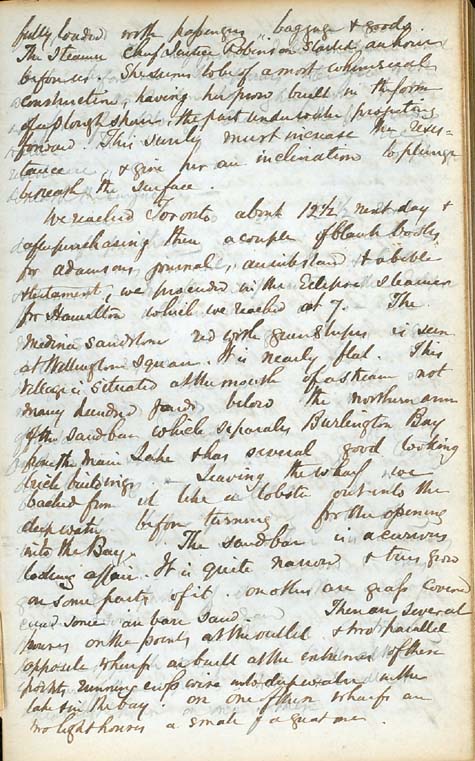 fully loaded with passengers, baggage & goods.
The Steamer Chief Justice Robinson Started an hour
before us. She seems to be of a most whimsical
construction, having her prow built in the form
of a plough share, the part under water projecting
forward. This surely must increase the resis-
tance, & give her an inclination to plunge
beneath the surface.
We reached Toronto about 12 1/2 next day &
after purchasing there a couple of blank books
for Adamsons journal, an inkstand & a bible
& testament, we proceeded in the Eclipse Steamer
for Hamilton which we reached at 7. The
Medina sandstone red with green stripes is seen
at Wellington Square. It is nearly flat. This
village is situated at the mouth of a stream not
many hundred yards below the northern arm
of the sand bar which separates Burlington Bay
from the main Lake & has several good looking
brick buildings. Leaving the wharf we
backed from it like a lobster out into the
deep water before turning for the opening
into the Bay. The sand bar is a curious
looking affair. It is quite narrow & trees grow
on some parts of it. others are grass covered
and some are bare sand. There are several
houses on the points at the outlet & two parallel
opposite wharfs are built at the entrance of these
points running cross wise into deep water in the
lake & in the bay. on one of these wharfs are
two light houses a small & a great one.